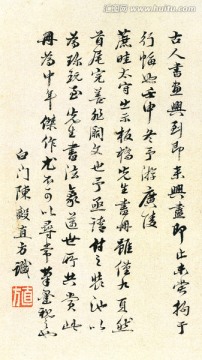 古人書画興到即来興盡即止未嘗拘于
行幅也壬申冬予游廣陵
蔗畦太守出示板橋先生書冊雖僅九頁然
首尾完善無闕文也予亟請付之裝池以
為珎玩至先生書法豪邁世所共貴此
冊為中年傑作尤不可以尋常筆墨視之也
白门陳毅直方識